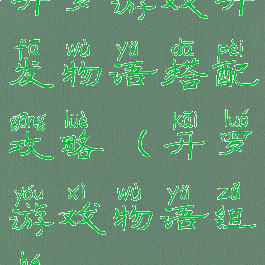 开罗游戏开
fā wù yǔ dā pèi
发物语搭配
gōng lüè kāi luó
攻略（开罗
yóu xì wù yǔ zǔ
游戏物语组
hé